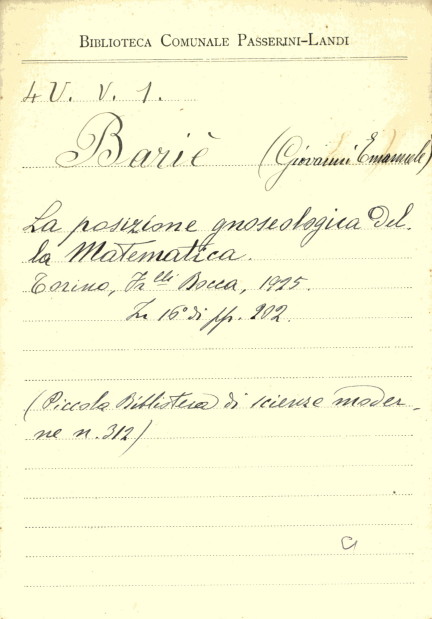 BIBLIOTECA COMUNALE PASSERINI-LANDI
4 V. V. 1.
Bariè (Giovanni Emanuele)
La posizione gnoseologica del-
la Matematica.
Torino, F.lli Bocca, 1925.
In 16° di pp. 202.
(Piccola Biblioteca di scienze moder-
ne n. 312)